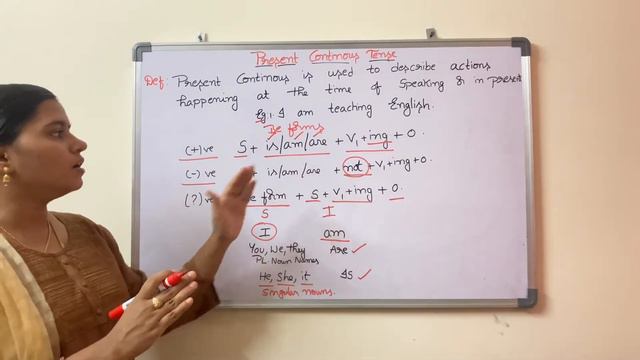 Present Continous Tense
Def: Present Continous is used to describe actions
happening at the time of speaking & in present
Eg:1. I am teaching English.
Be forms
(+)ve S + is/am/are + V₁ + ing + O.
(-)ve + is/am/are + not + V₁ + ing + O.
(?)ve form + S + V₁ + ing + O.
S I
I am
You, We, they Are ✓
PL. Noun Names
He, She, it Is ✓
Singular nouns.